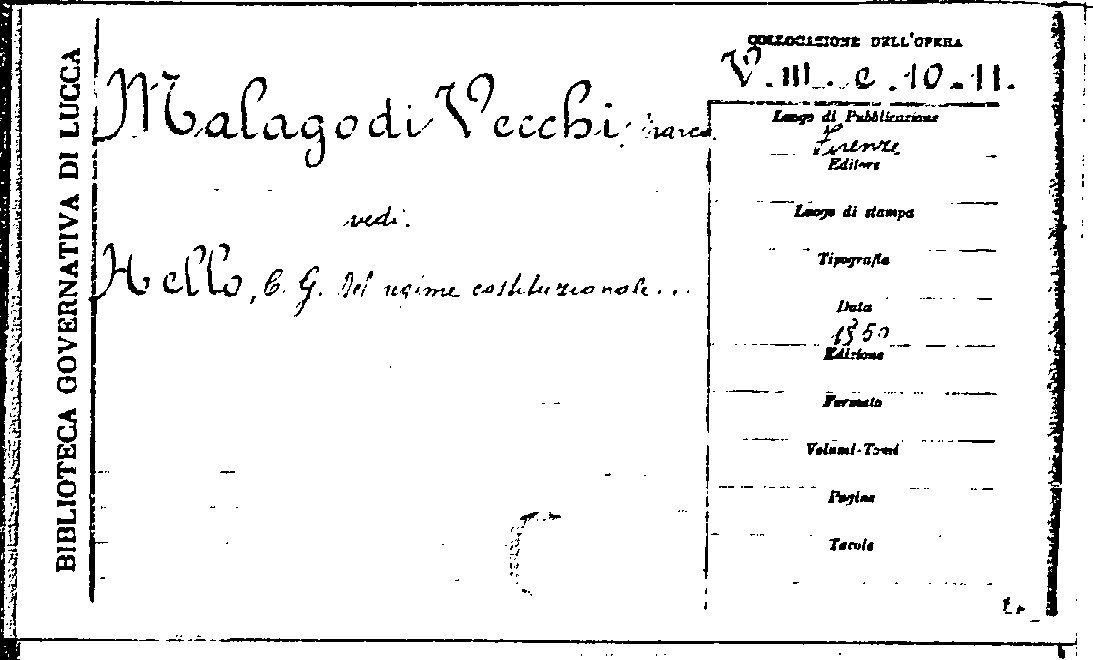 BIBLIOTECA GOVERNATIVA DI LUCCA
COLLOCAZIONE DELL'OPERA
V. III. c. 10-11.
Malagodi Vecchi, Marco.
vedi.
Hello, C. G. Del regime costituzionale...
Luogo di Pubblicazione
Firenze
Editore
Luogo di stampa
Tipografia
Data
1850
Edizione
Formato
Volumi-Tomi
Pagine
Tavole